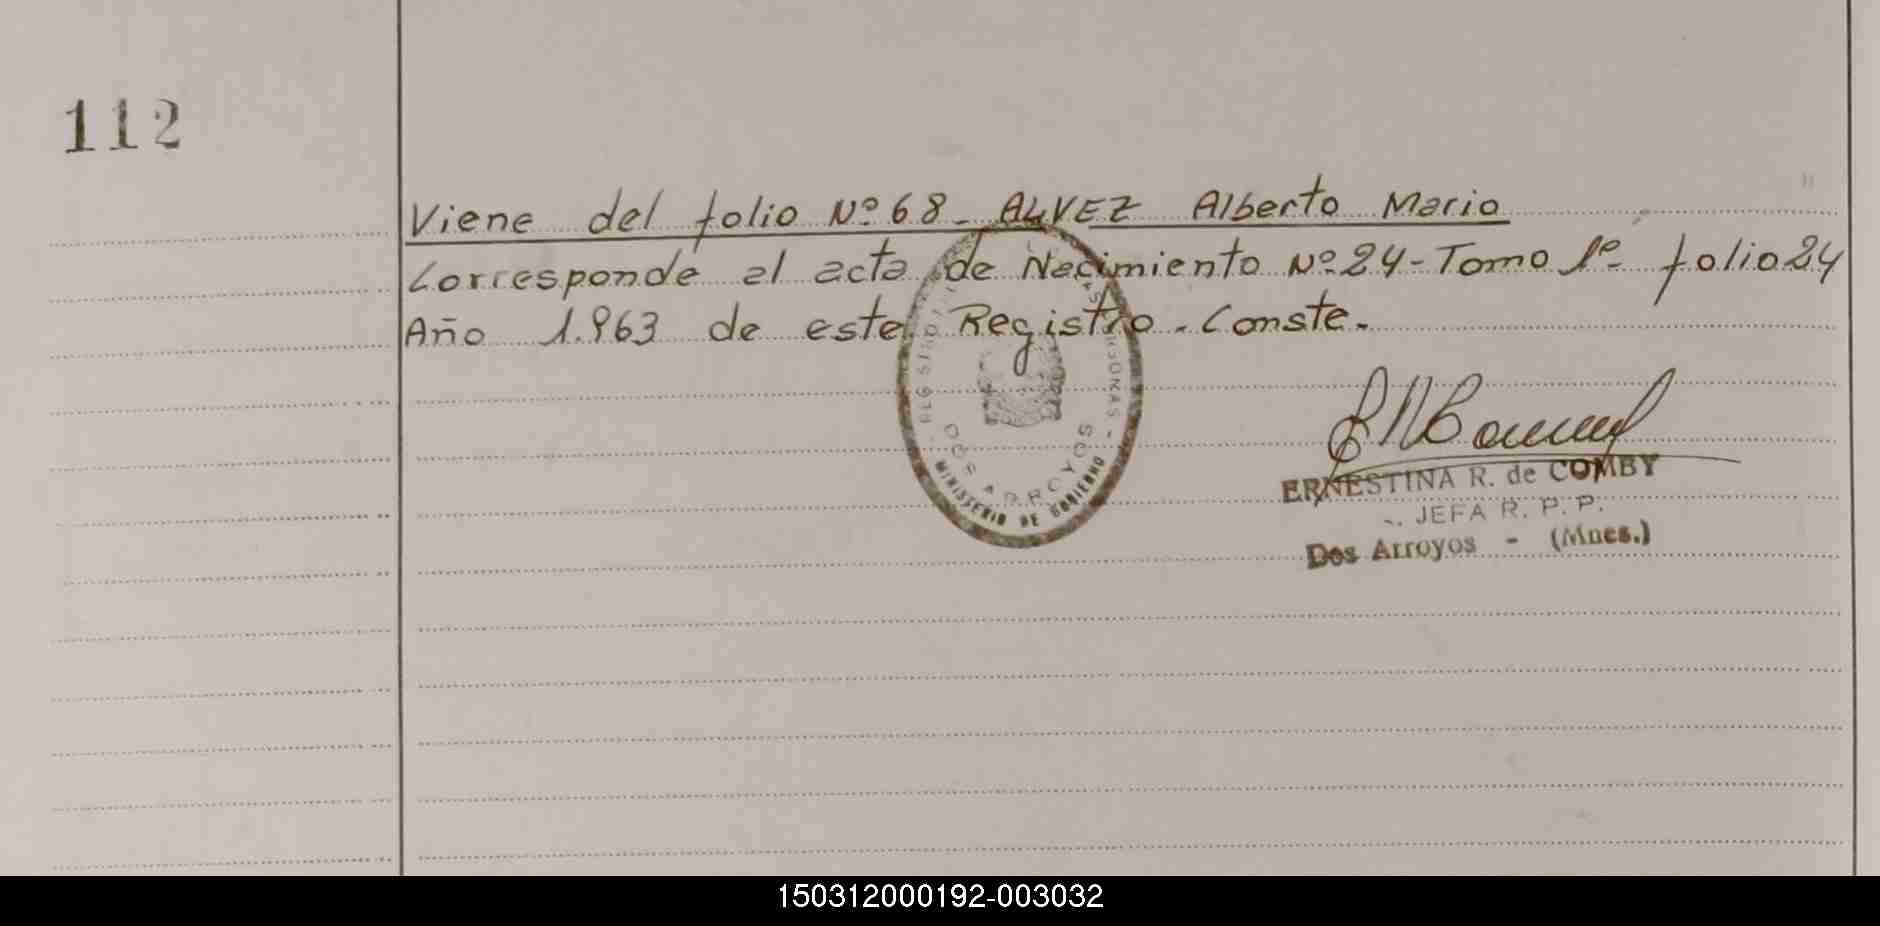 112
Viene del folio Nº 68_ ALVEZ Alberto Mario
Corresponde al acta de Nacimiento Nº 24 - Tomo 1º folio 24
Año 1.963 de este Registro. Conste.
DOS ARROYOS
MINISTERIO DE GOBIERNO
ERNESTINA R. de COMBY
JEFA R. P. P.
Dos Arroyos - (Mnes.)
150312000192-003032